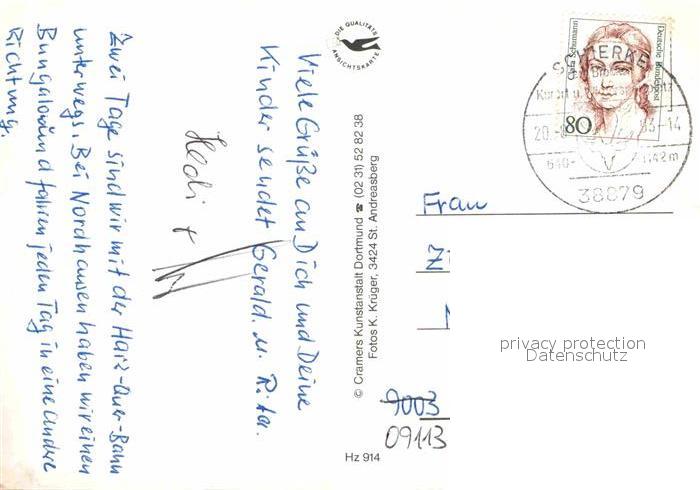 Zwei Tage sind wir mit der Harz-Quer-Bahn
unterwegs. Bei Nordhausen haben wir einen
Bungalow und fahren jeden Tag in eine andre
Richtung.
Viele Grüße an Dich und Deine
Kinder sendet Gerald u. Rita.
Hedi +
DIE QUALITÄTS
ANSICHTSKARTE
© Cramers Kunstanstalt Dortmund ☎ (02 31) 52 82 38
Fotos K. Krüger, 3424 St. Andreasberg
Hz 914
Deutsche Bundespost
Clara Schumann
80
SCHIERKE
Kurort u.
20.
93-14
640-
1142m
38879
Frau
Zi
9003
09113
privacy protection
Datenschutz